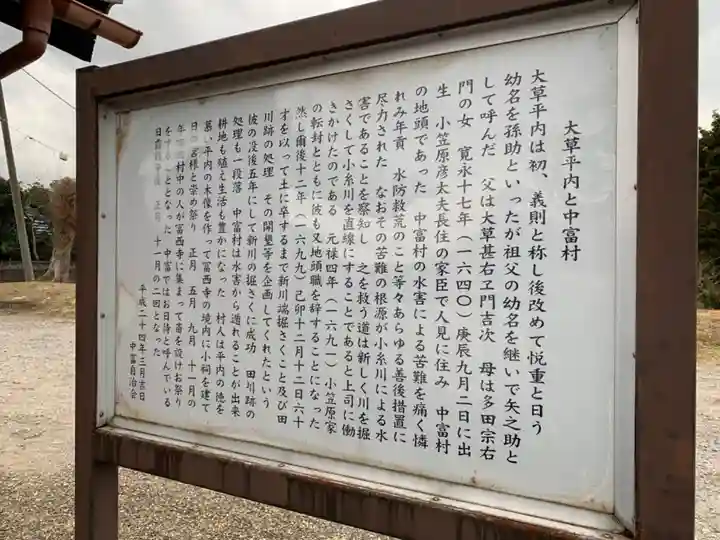 大草平内と中富村
大草平内は初、義則と称し後改めて悦重と日う
幼名を孫助といったが祖父の幼名を継いで矢之助と
して呼んだ 父は大草甚右ヱ門吉次 母は多田宗右
門の女 寛永十七年(一六四〇)庚辰九月二日に出
生 小笠原彦太夫長住の家臣で人見に住み 中富村
の地頭であった 中富村の水害による苦難を痛く憐
れみ年貢 水防救荒のこと等々あらゆる善後措置に
尽力された なおその苦難の根源が小糸川による水
害であることを察知し 之を救う道は新しく川を掘
さくして小糸川を直線にすることであると上司に働
きかけたのである 元禄四年(一六九一)小笠原家
の転封とともに彼も又地頭職を辞することになった
然し爾後十二年(一六九九)己卯十二月十二日六十
才を以って土に卒するまで新川端掘さくこと及び田
川跡の処理 その開墾等を企画してくれたという
彼の没後五年にして新川の掘さくに成功 田川跡の
処理も一段落 中富村は水害から逃れることが出来
耕地も殖え生活も豊かになった 村人は平内の徳を
慕い平内の木像を作って冨西寺の境内に小祠を建て
日の宮様と崇め祭り 正月 五月 九月 十一月の
年 村中の人が冨西寺に集まって斎を設けお祭り
を することとなった 中富ではお日待と呼んでいる
日 正月 十一月の二回となった
平成二十四年三月吉日
中富自治会